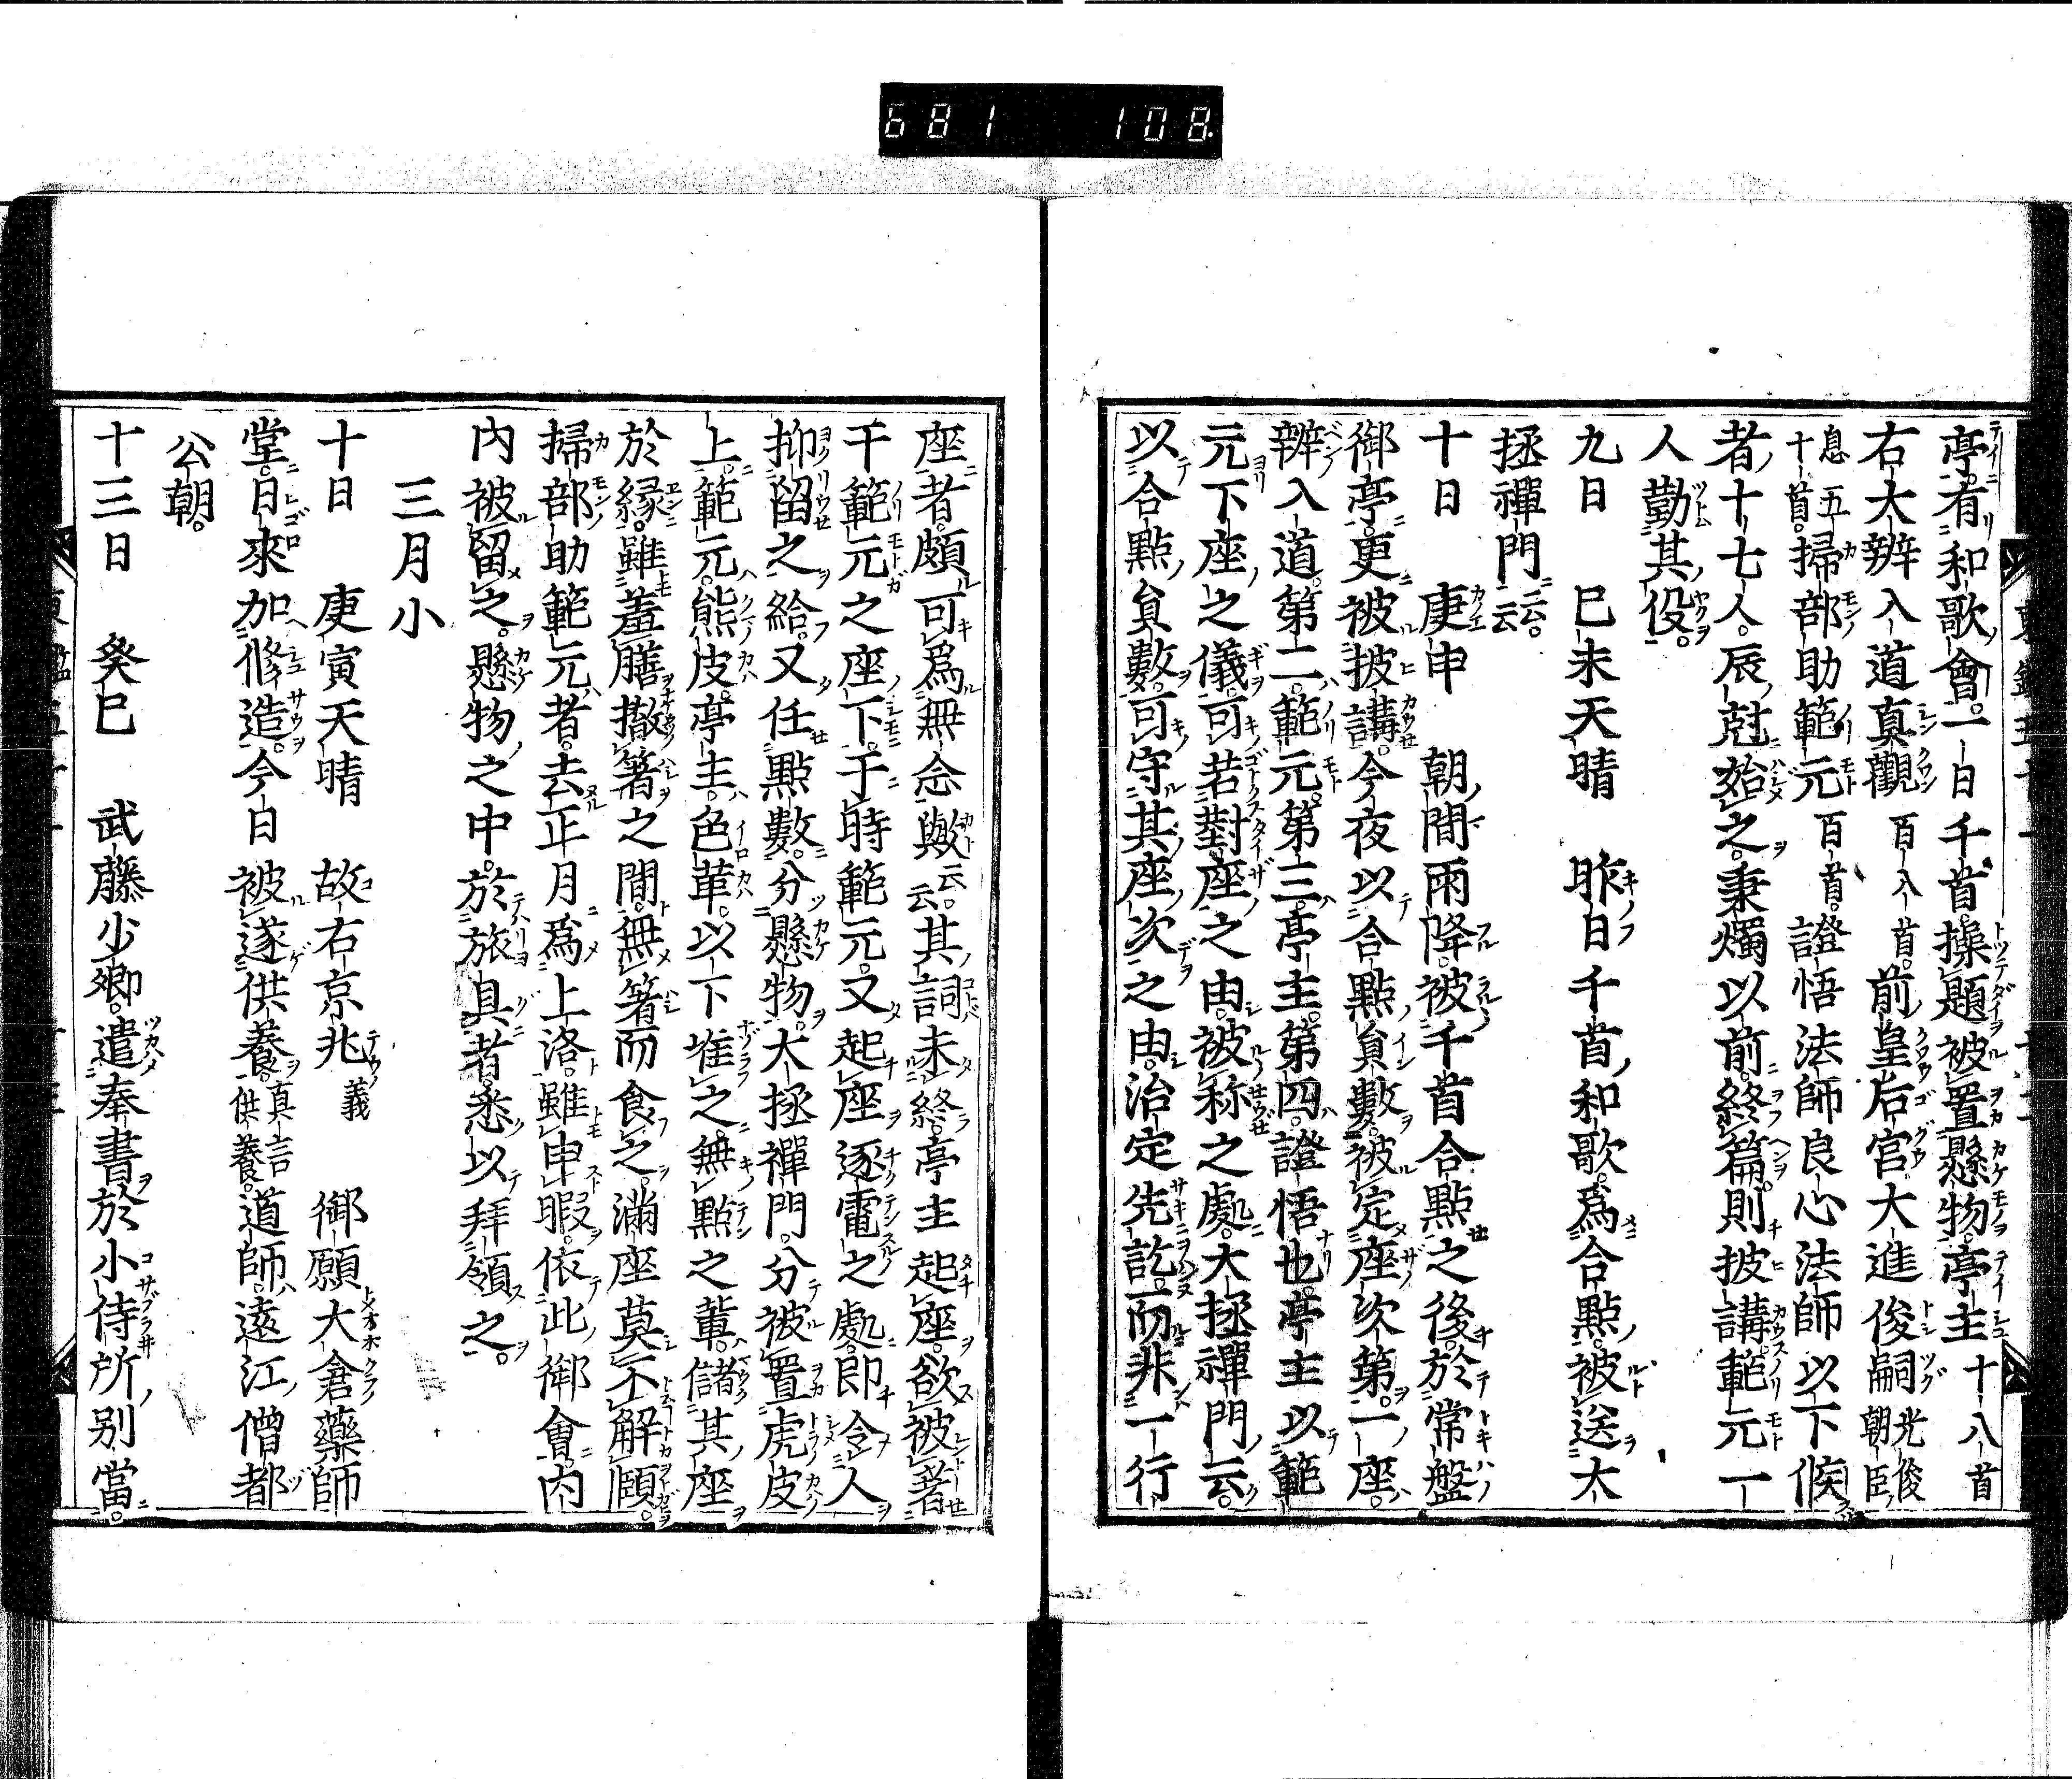 681 108
亭有和歌會一日千首操題被置懸物亭主十八首
右大辨入道真觀百八首前皇后宮大進俊嗣光俊朝臣
息五十首掃部助範元百首證悟法師良心法師以下候
者十七人辰尅始之秉燭以前終篇則披講範元一
人勤其役
九日 巳未天晴 昨日千首和歌爲合點被送大
拯禪門云云
十日 庚申 朝間雨降被千首合點之後於常盤
御亭更被披講今夜以合點負數被定座次第一座
辨入道第二範元第三亭主第四證悟也亭主以範
元下座之儀可若對座之由被称之處大拯禪門云
以合點負數可守其座次之由治定先訖而非一行
座者頗可爲無念歟云云其詞未終亭主起座欲被著
于範元之座下于時範元又起座逐電之處即令人
抑留之給又任點數分懸物大拯禪門分被置虎皮
上範元熊皮亭主色革以下准之無點之輩儲其座
於縁雖羞膳撤箸之間無箸而食之滿座莫不解頤
掃部助範元者去正月爲上洛雖申暇依此御會内
内被留之懸物之中於旅具者悉以拜領之
三月小
十日 庚寅天晴 故右京兆義 御願大倉藥師
堂日來加修造今日被遂供養真言供養道師遠江僧都
公朝
十三日 癸巳 武藤少卿遣奉書於小侍所別當